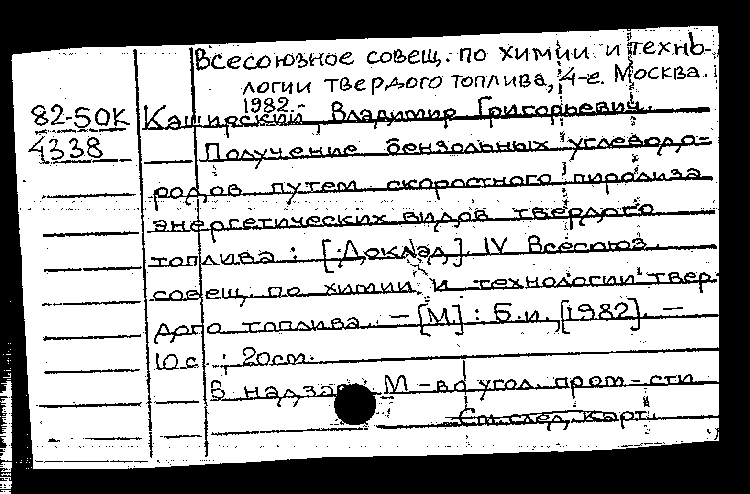 Всесоюзное совещ. по химии и техно-
логии твердого топлива, 4-е. Москва.
1982.
82-50К Каширский, Владимир Григорьевич.
4338 Получение бензольных углеводо-
родов путем скоростного пиролиза
энергетических видов твердого
топлива : [Доклад]. IV Всесоюз.
совещ. по химии и технологии твер-
дого топлива. — [М] : Б.и., [1982]. —
10 с. ; 20см.
В надзаг.: М-во угол. пром-сти
См. след. карт.